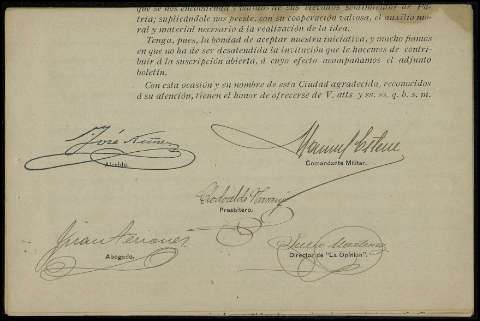 que se nos encomienda y valido de sus elevados sentimientos de Pa-
tria; suplicándole nos preste, con su cooperación valiosa, el auxilio mo-
ral y material necesario á la realización de la idea.
Tenga, pues, la bondad de aceptar nuestra iniciativa, y mucho fiamos
en que no ha de ser desatendida la invitación que le hacemos de contri-
buir á la suscripción abierta, á cuyo efecto acompañamos el adjunto
boletín.
Con esta ocasión y en nombre de esta Ciudad agradecida, reconocidos
á su atención, tienen el honor de ofrecerse de V. atts. y ss. ss. q. b. s. m.
José Núñez
Alcalde.
Manuel Esteve
Comandante Militar.
Presbítero.
Juan
Abogado.
Martínez
Director de "La Opinión".